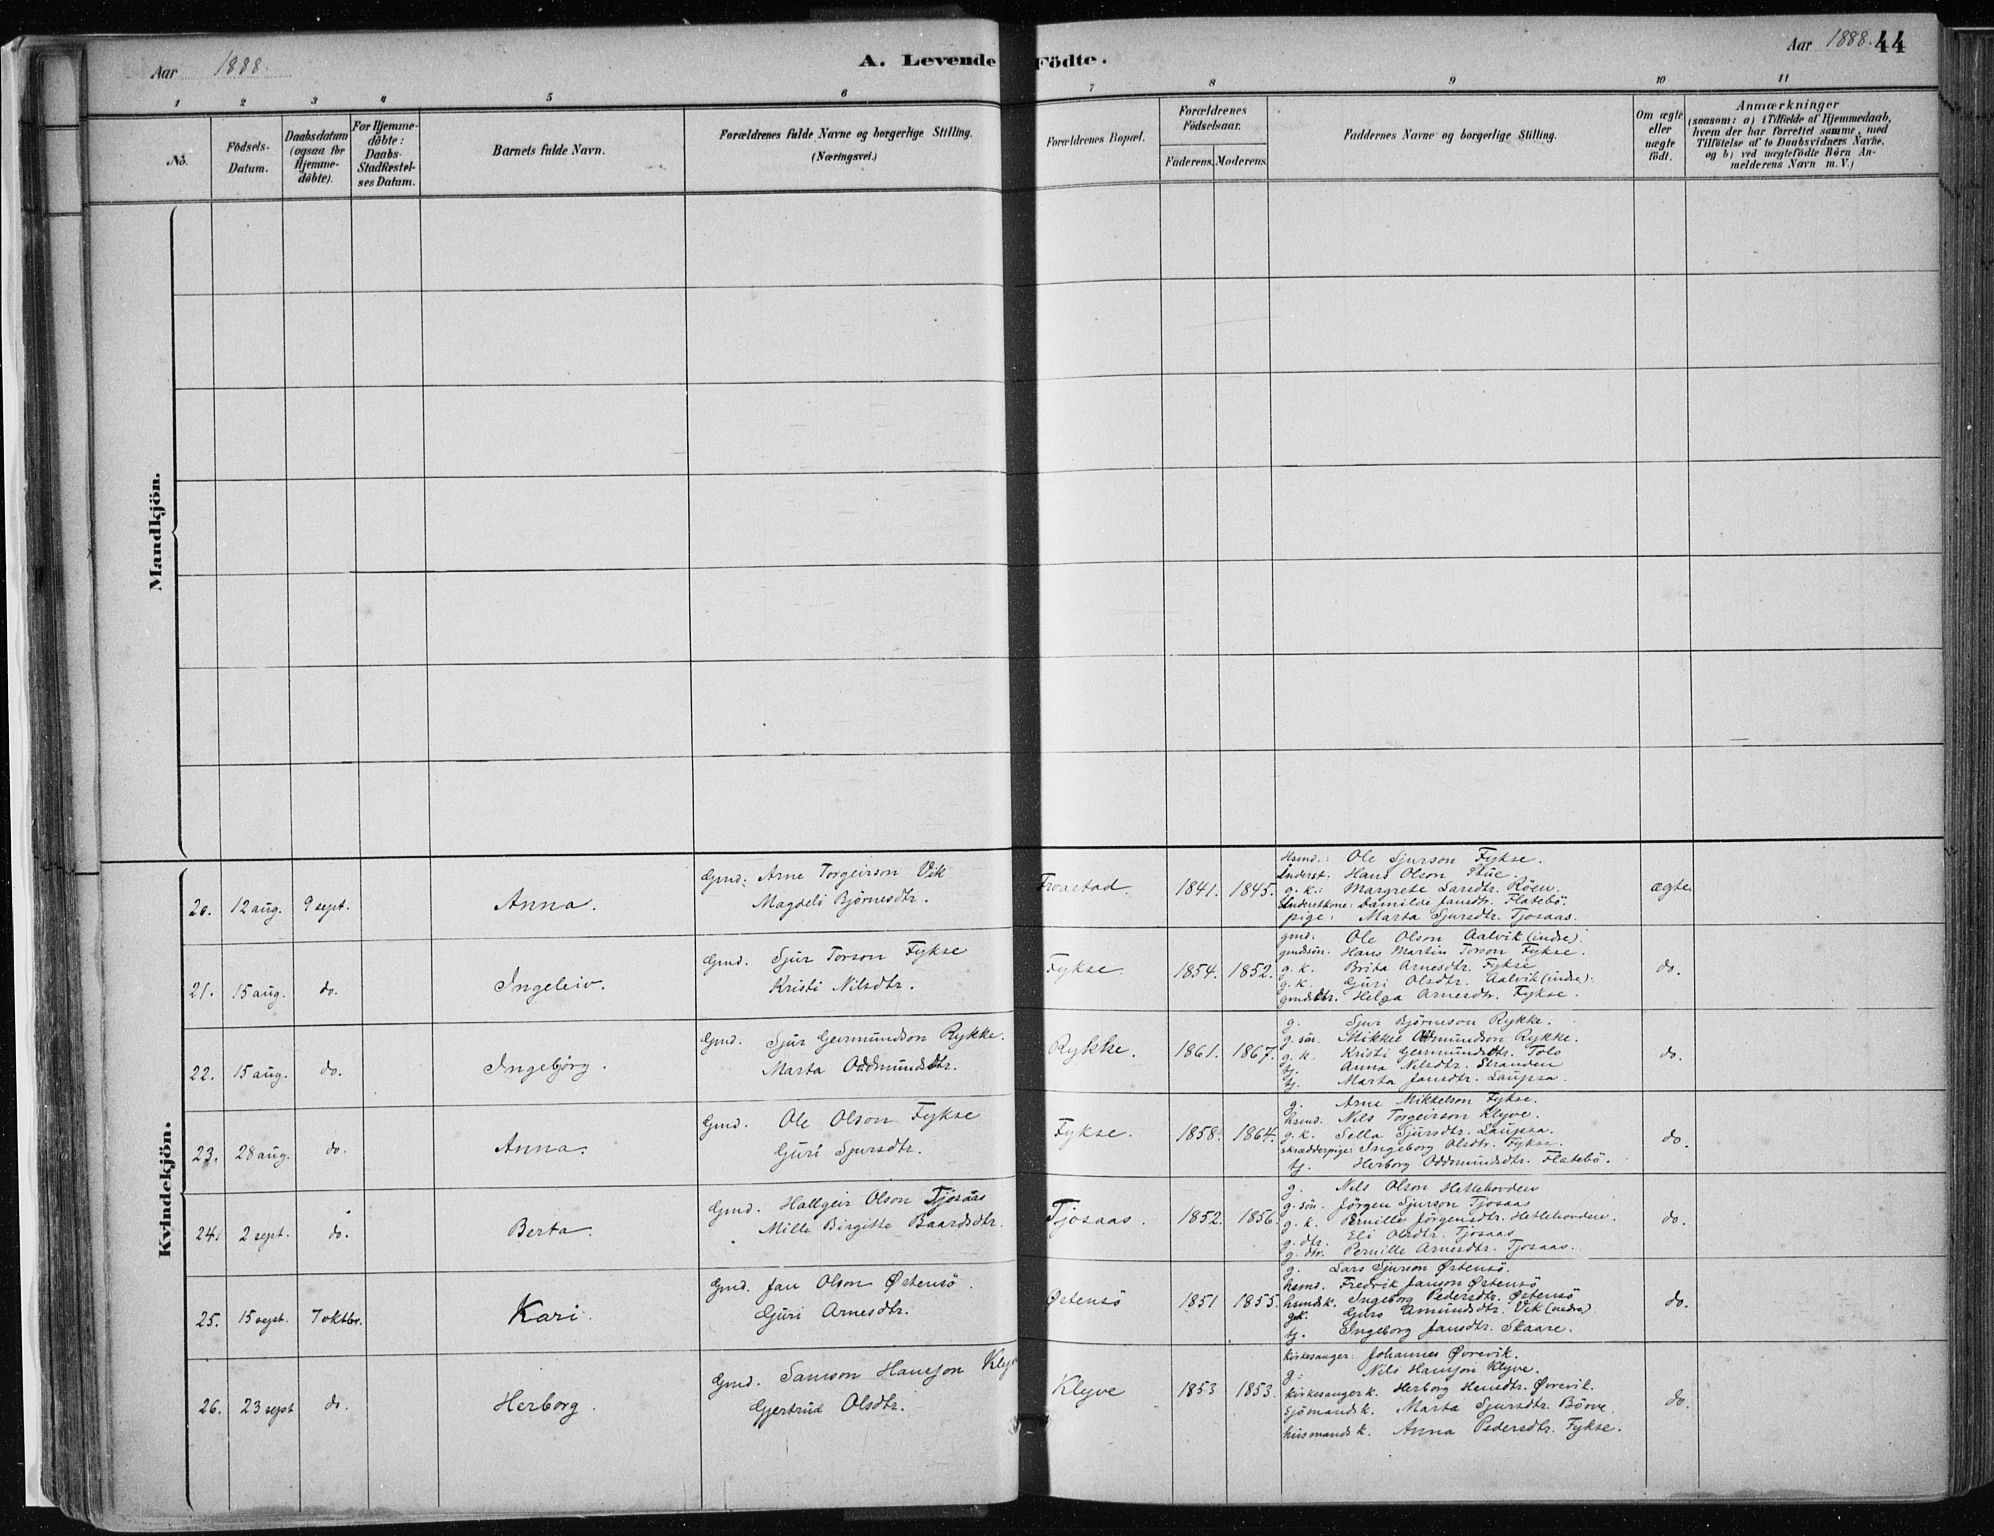 Aar 1888.
A. Levende Födte.
Aar 1888. 44
1 2 3 4 5 6 7 8 9 10 11
No.
Födsels-Datum.
Daabsdatum (ogsaa for Hjemme-döbte).
For Hjemme-döbte: Daabs-Stadfæstel-ses Datum.
Barnets fulde Navn.
Forældrenes fulde Navne og borgerlige Stilling.
(Næringsvei.)
Forældrenes Bopæl.
Forældrenes Födselsaar.
Faderens. Moderens.
Faddernes Navne og borgerlige Stilling.
Om ægte eller uægte födt.
Anmærkninger
(saasom: a) i Tilfælde af Hjemmedaab,
hvem der har forrettet samme, med
Tilföielse af to Daabsvidners Navne,
og b) ved uægtefödte Börn An-
melderens Navn m. V.)
Mandkjön.
Kvindekjön.
20. 12 aug. 9 sept. Anna.
Gmd. Arne Torgeirson Vik
Magdeli Bjørnesdtr.
1841. 1845.
Hsmd.: Ole Sjurson Fykse.
Inderst: Hans Olson Stue.
g. k.: Margrete Larsdtr. Röen.
Inderstkone: Damilde Jansdtr. Flatebö.
pige: Marta Sjursdtr. Tjosaas.
ægte.
21. 15 aug. do. Ingeleiv.
Gmd. Sjur Torson Fykse
Kristi Nilsdtr.
Fykse 1854. 1852.
gmd. Ole Olson Aalvik (indre).
gmdsön. Hans Martin Torson Fykse.
g. k. Brita Arnesdtr. Fykse
g. k. Guri Olsdtr. Aalvik (indre).
gmdsdtr. Helga Arnesdtr. Fykse.
do.
22. 15 aug. do. Ingebjörg.
Gmd. Sjur Germundson Rykke.
Marta Oddmundsdtr.
Rykke. 1861. 1867.
g. Sjur Bjørneson Rykke.
g. sön. Mikkel Oddmundson Rykke.
g. k. Kristi Germundsdtr. Tolo
tj. Anna Nilsdtr. Stranden
tj. Marta Jansdtr. Laupsa.
do.
23. 28 aug. do. Anna.
Gmd. Ole Olson Fykse
Guri Sjursdtr.
Fykse. 1858. 1864.
g. Arne Mikkelson Fykse.
hsmd. Nils Torgeirson Klyve.
g. k. Sella Sjursdtr. Laupsa.
skrædderpige: Ingeborg Olsdtr. Fykse.
tj. Herborg Oddmundsdtr. Flatebö.
do.
24. 2 sept. do. Berta.
Gmd. Hallgeir Olson Tjosaas
Mille Birgitte Baardsdtr.
Tjosaas. 1852. 1856.
g. Nils Olson Hetlehorden
g. sön. Jörgen Sjurson Tjosaas
g. k. Pernille Jörgensdtr. Hetlehorden.
g. dtr. Eli Olsdtr. Tjosaas
g. dtr. Pernille Arnesdtr. Tjosaas.
do.
25. 15 sept. 7 oktbr. Kari.
Gmd. Jan Olson Østensö.
Guri Arnesdtr.
Østensö 1851 1855.
g. Lars Sjurson Østensö.
hsmd. Fredrik Janson Østensö
hsmdsk. Ingeborg Pedersdtr. Østensö
gk. Guro Amundsdtr. Vik (nedre)
tj. Ingeborg Jansdtr. Skaare.
do.
26. 23 sept do. Herborg.
Gmd. Samson Hansson
Gjertrud Olsdtr.
Klyve 1853 1853.
Kirkesanger: Johannes Øvrevik.
g: Nils Hansson Klyve.
Kirkesanger k. Herborg Hansdtr. Øvrevik.
Sjömandsk. Marta Sjursdtr. Börve.
husmandsk. Anna Pedersdtr. Fykse.
do.